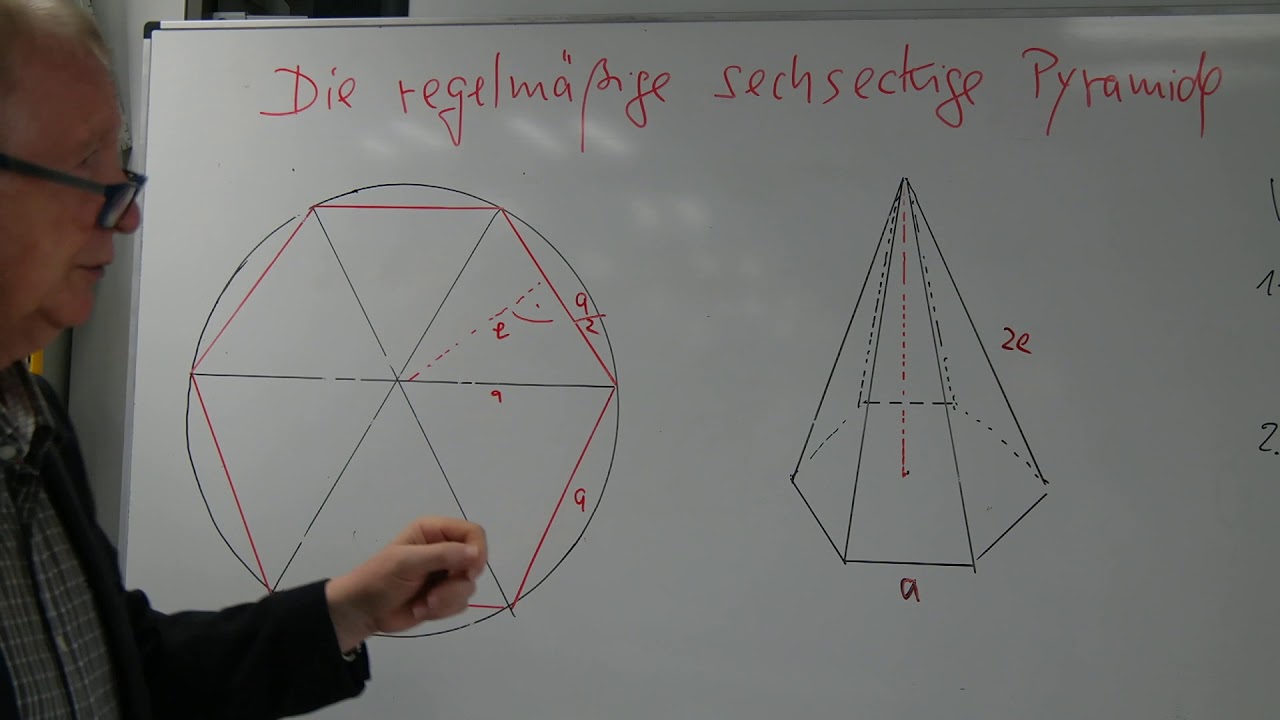 Die regelmäßige sechseckige Pyramide
a/2
e
a
a
2e
a
1.
2.